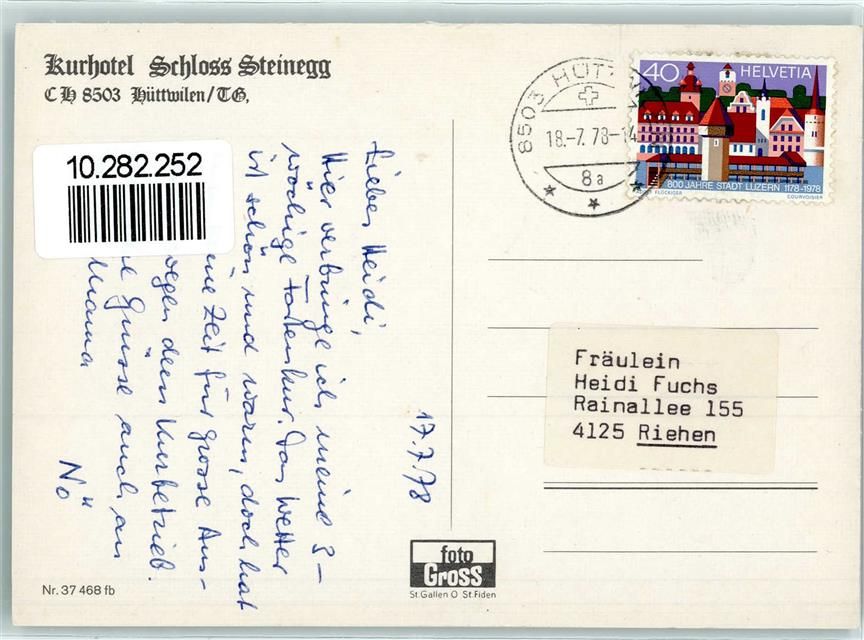 Kurhotel Schloss Steinegg
CH 8503 Hüttwilen/TG,
10.282.252
8503 HÜTT
18.-7.78-14
8a
40 HELVETIA
800 JAHRE STADT LUZERN 1178-1978
COURVOISIER
Liebes Heidi,
Hier verbringe ich meine 3-
wöchige Fastenkur. Das Wetter
ist schön und warm, doch hat
Zeit für grosse Aus-
wegen dem Kurbetrieb.
Grüsse auch an
Mama
Nö
17.7.78
Fräulein
Heidi Fuchs
Rainallee 155
4125 Riehen
foto
Gross
St.Gallen O St.Fiden
Nr. 37 468 fb